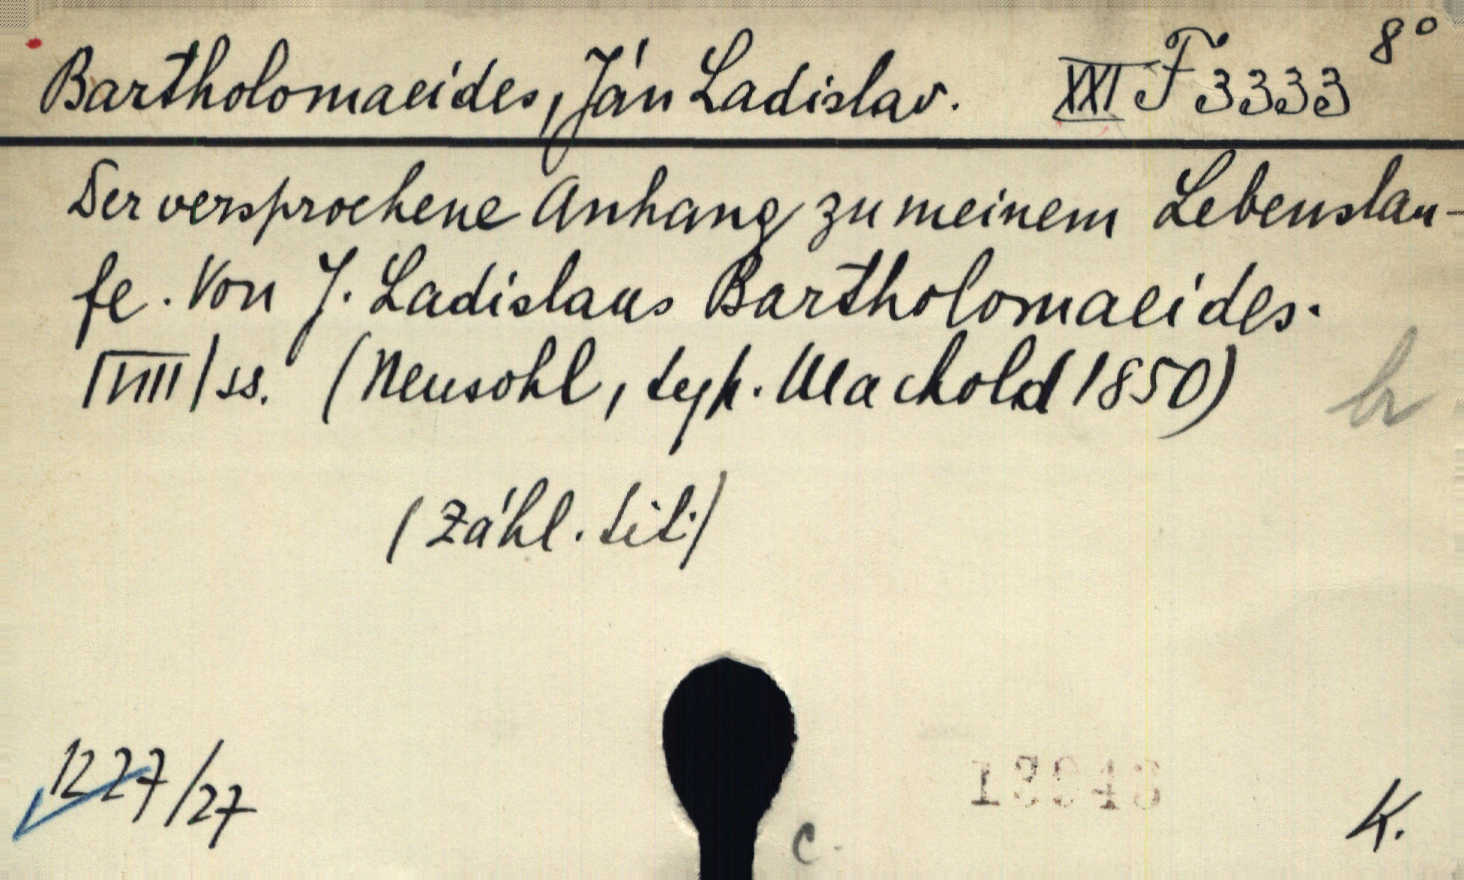 Bartholomaeides, Ján Ladislav. XXI F 3333 8°
Der versprochene Anhang zu meinem Lebenslau-
fe. Von J. Ladislaus Bartholomaeides.
ss. (Neusohl, typ. Machold 1850)
br
(Záhl. tit.)
1227/27
13943
K.
c.